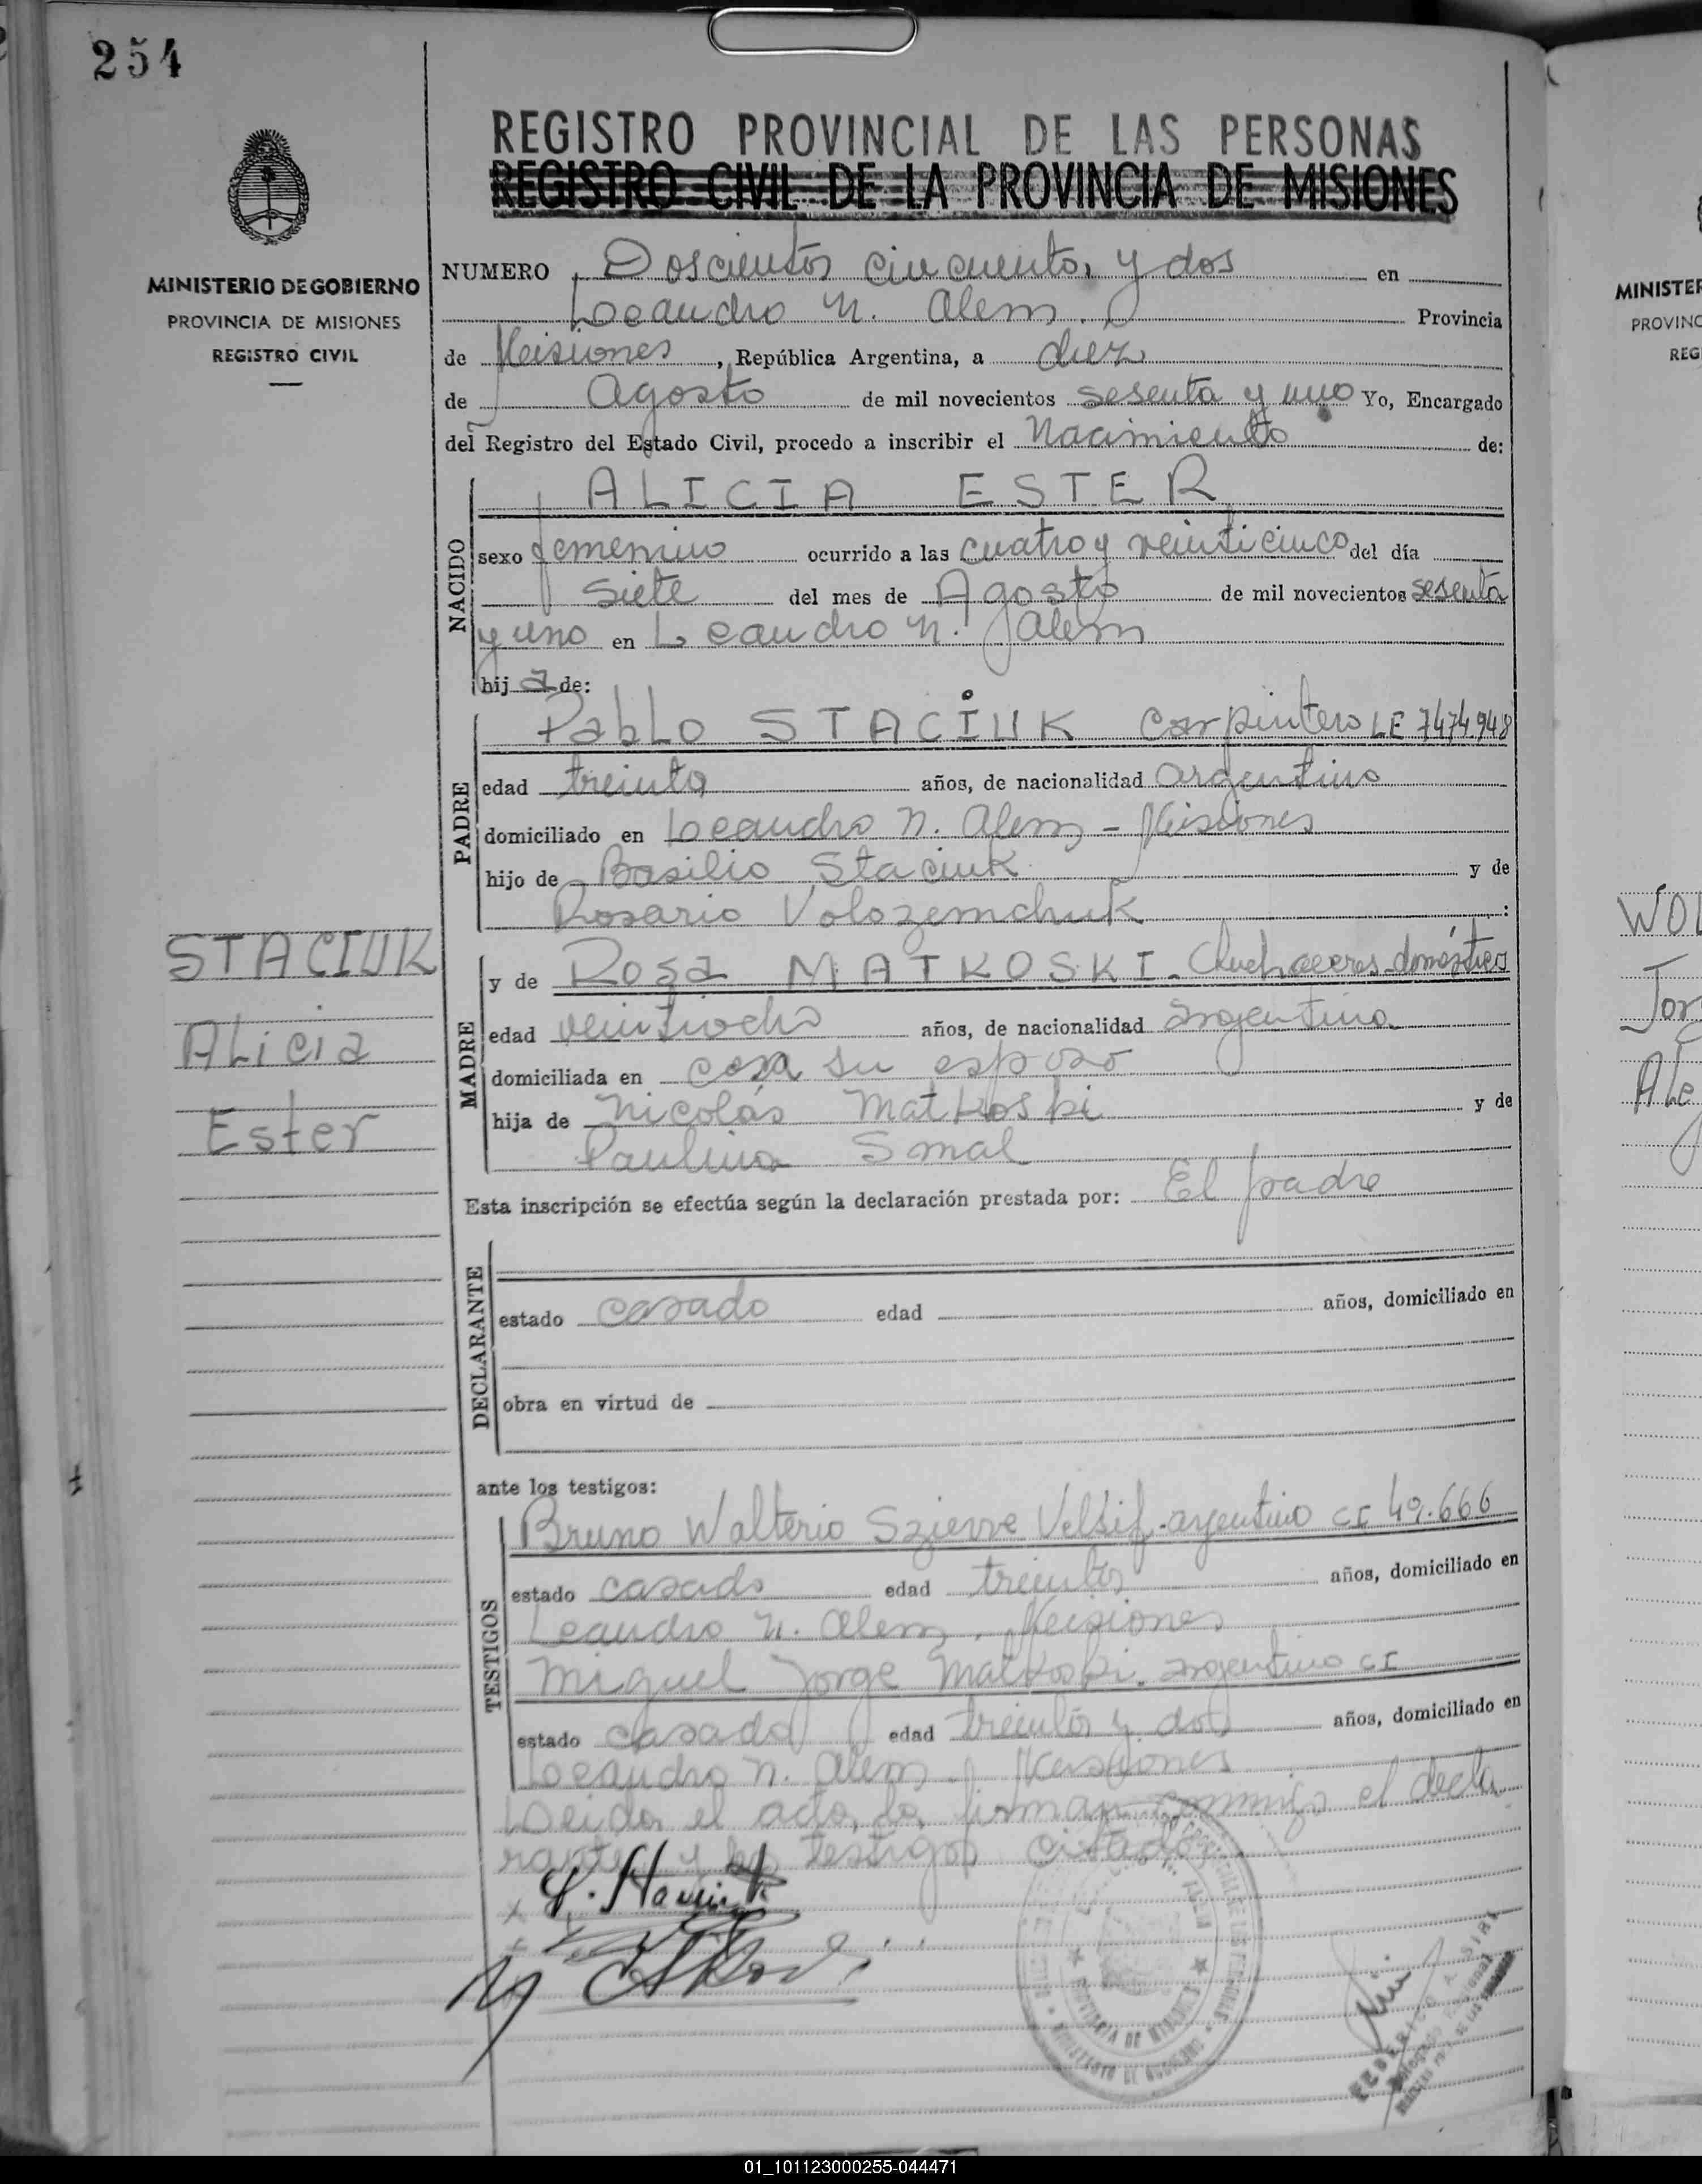 254
REGISTRO PROVINCIAL DE LAS PERSONAS
REGISTRO CIVIL DE LA PROVINCIA DE MISIONES
MINISTERIO DE GOBIERNO
PROVINCIA DE MISIONES
REGISTRO CIVIL
NUMERO Doscientos cincuenta y dos en
Leandro N. Alem Provincia
de Misiones, República Argentina, a diez
de Agosto de mil novecientos sesenta y uno Yo, Encargado
del Registro del Estado Civil, procedo a inscribir el Nacimiento de:
NACIDO
ALICIA ESTER
sexo femenino ocurrido a las cuatro y veinticinco del día
siete del mes de Agosto de mil novecientos sesenta
y uno en Leandro N. Alem
hij a de:
PADRE
Pablo STACIUK Carpintero LE 7474.948
edad treinta años, de nacionalidad argentino
domiciliado en Leandro N. Alem - Misiones
hijo de Basilio Staciuk y de
Rosario Volozemchuk :
STACIUK
Alicia
Ester
MADRE
y de Rosa MATKOSKI - Quehaceres domésticos
edad veintiocho años, de nacionalidad argentina
domiciliada en con su esposo
hija de Nicolás Matkoski y de
Paulina Smal
Esta inscripción se efectúa según la declaración prestada por: El padre
DECLARANTE
estado casado edad años, domiciliado en
obra en virtud de
ante los testigos:
TESTIGOS
Bruno Walterio argentino CI 49.666
estado casado edad treinta años, domiciliado en
Leandro N. Alem. Misiones
Miguel Jorge Matkoski. argentino CI
estado casado edad treinta y dos años, domiciliado en
Leandro N. Alem. Misiones
Leida el acta, la firman conmigo el decla
rante y los testigos citados
PROVINCIA DE MISIONES
MINISTERIO DE GOBIERNO
MINISTER
PROVINC
REG
WOL
Jor
Ale
01_101123000255-044471